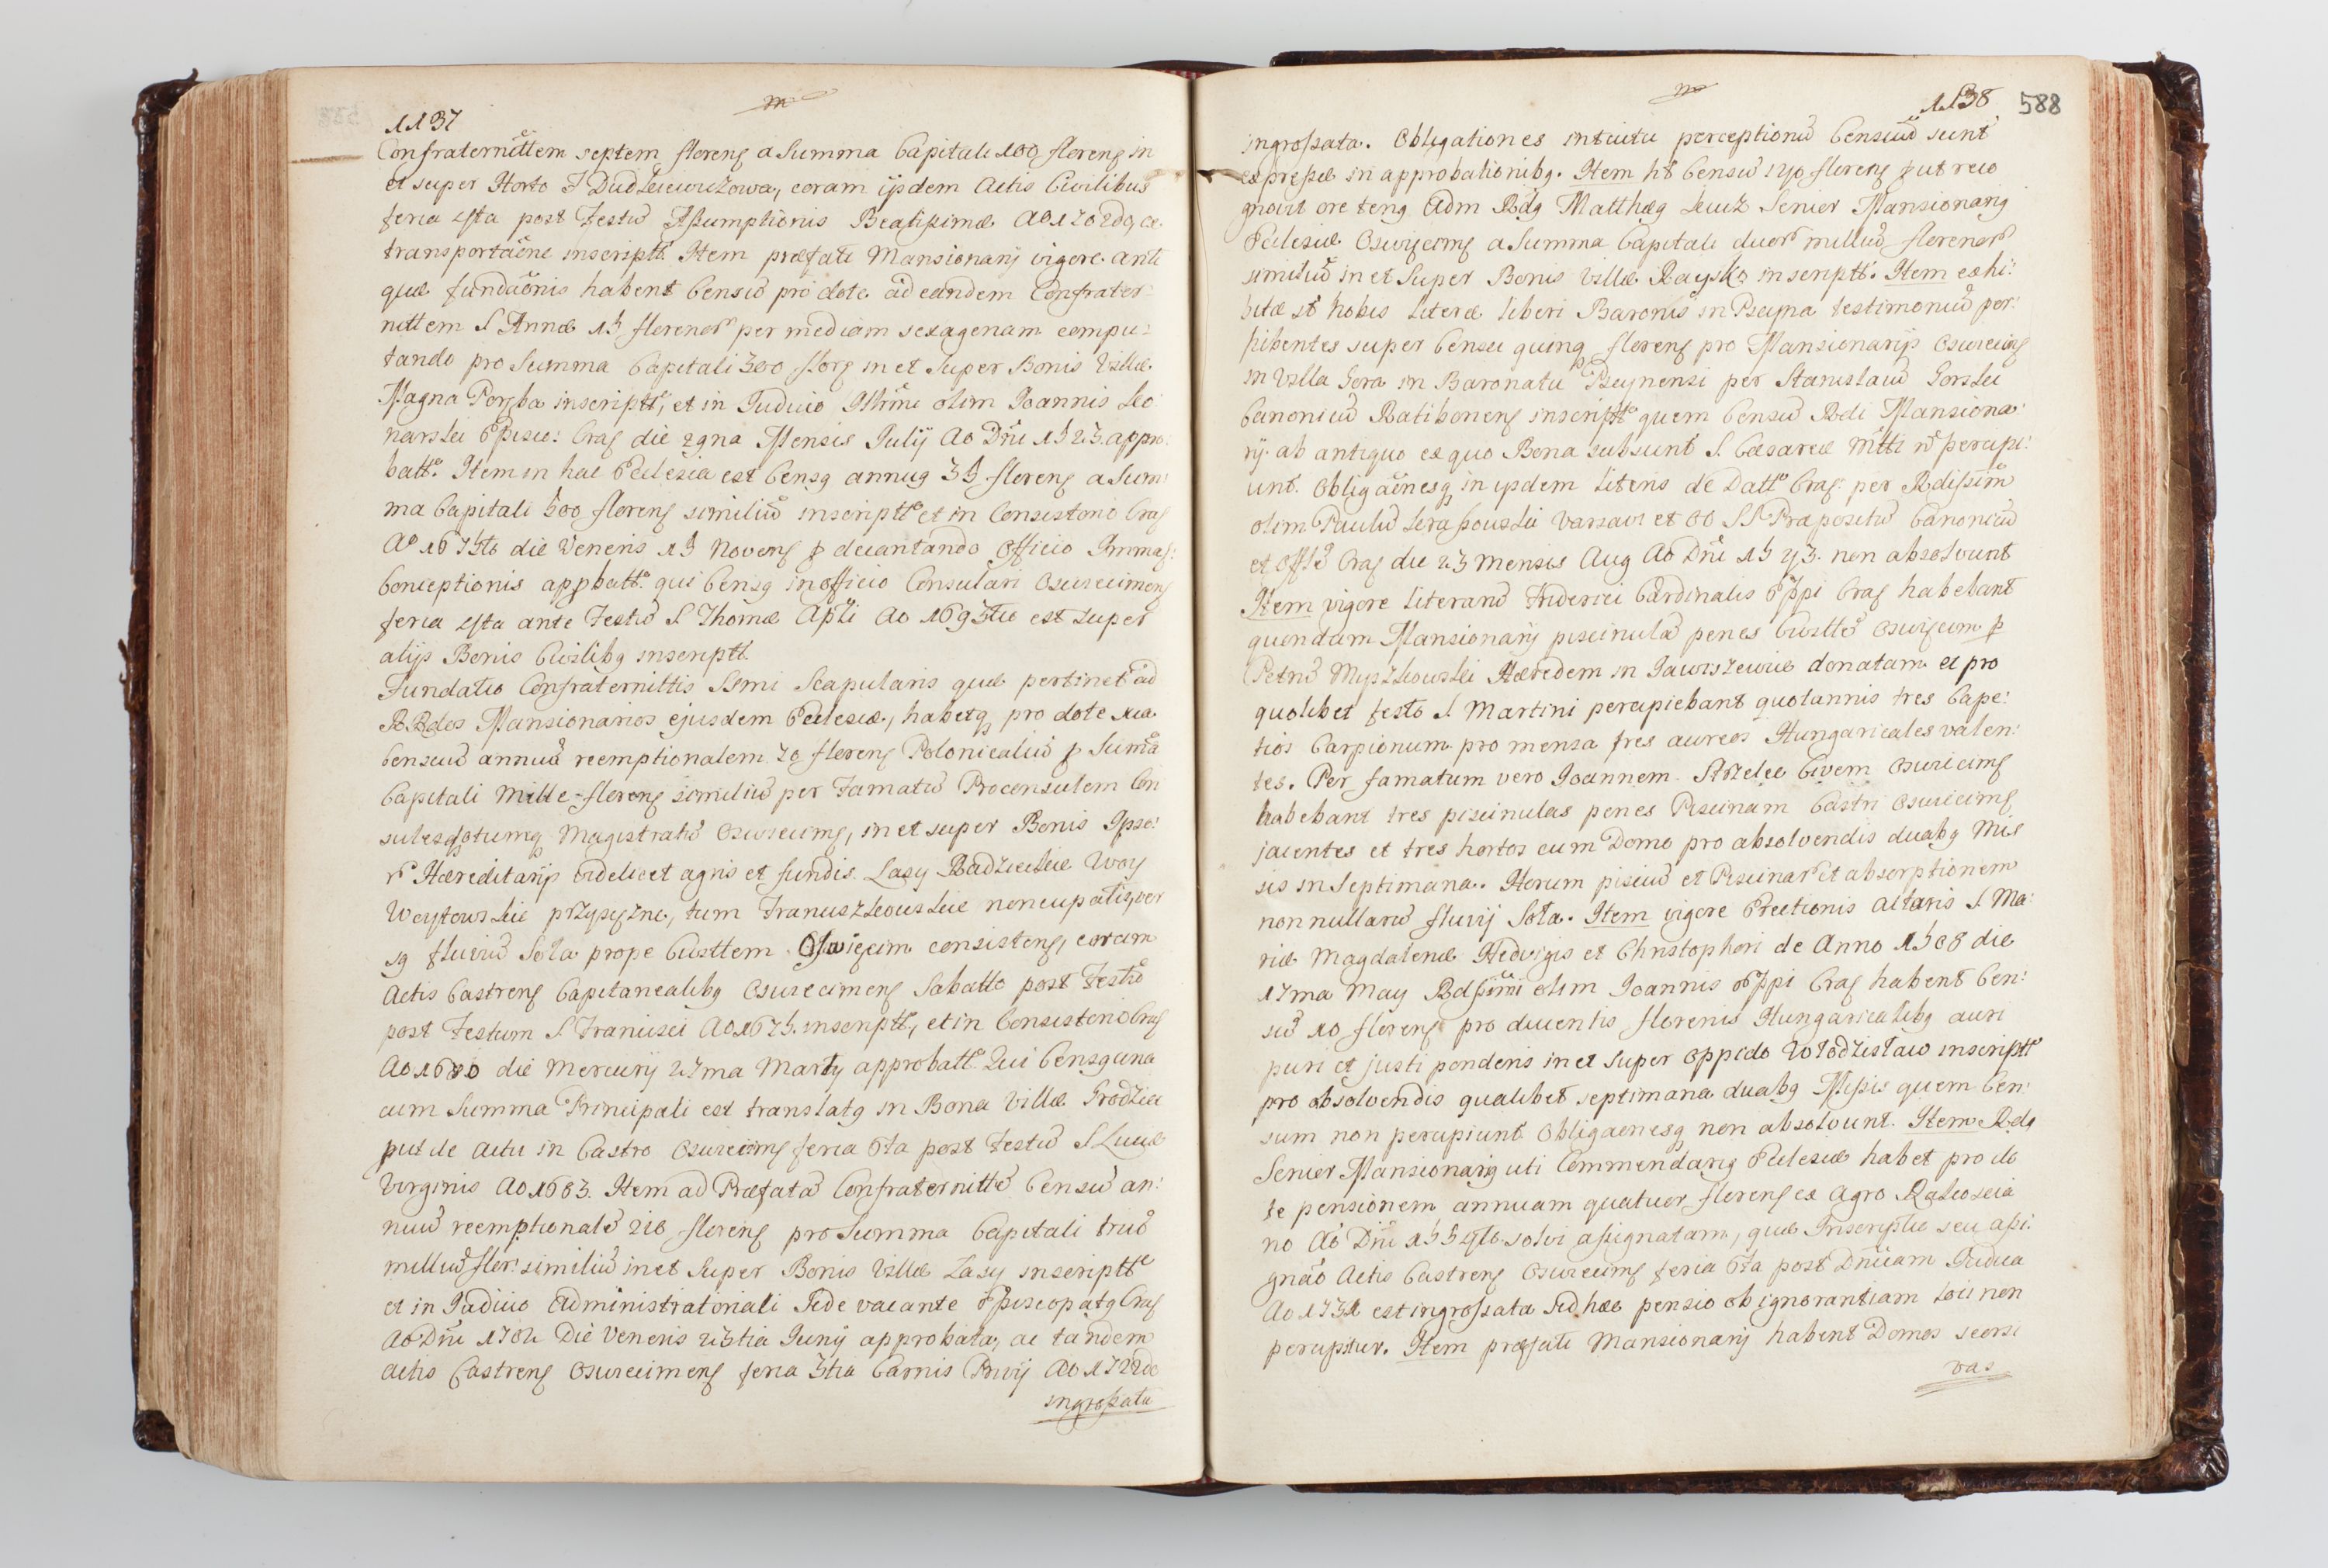 1137
Confraternittem septem floreng a Summa Capitali 100 floreng in
et super Horto J Dudkiewiczowa, coram ijsdem Actis Civilibus
feria 4ta post Festū Assumptionis Beatissimæ Ao 1702do, ex
transportaōne inscriptt. Item præfati Mansionarij vigore anti
quæ fundaōnis habent Censū pro dote ad eandem Confrater-
nittem S Annæ 15 florenor per mediam sexagenam compu-
tando pro Summa Capitali 300 florg in et super Bonis Villæ
Magna Poręba inscriptt, et in Judicio Illrmi olim Joannis Ko-
narski Episc: Crac die 29na Mensis Julij Ao Dni 1523. appro-
batt. Item in hac Ecclesia est Censg annug 35 floreng a Sum-
ma Capitali 500 floreng similiū inscriptt et in Consistorio Crac
Ao 1675to die Veneris 15 Novemg p decantando Officio Immac:
Conceptionis appbatt. qui Censg in officio Consulari Oswiecimeng
feria 4ta ante Festū S Thomæ Apli Ao 1693tio est super
alijs Bonis Civilibg inscriptt.
Fundatio Confraternittis SSmi Scapularis quæ pertinet ad
RRdos Mansionarios ejusdem Ecclesiæ, habetq pro dote sua
Censum annuū reemptionalem 70 floreng Polonicaliū p Sumā
Capitali Mille floreng similiū per Famatū Proconsulem Con
sulesq totumq Magistratū Oswiecimg, in et super Bonis Ipso-
r Hæreditarijs videlicet agris et fundis Lazy Radzieckie Woy
Woytowskie przysężne, tum Franuszkowskie noncupatis ver
sg fluviū Sola prope Civttem Oswięcim consisteng, coram
Actis Castreng Capitanealibg Oswiecimeng Sabatto post Festū
post Festum S Francisci Ao 1675. inscriptt, et in Consistorio Crac
Ao 1680 die Mercurij 27ma Martij approbatt. Qui Censg una
cum Summa Principali est translatg in Bona Villæ Grodziec
put de actu in Castro Oswiecimg feria 6ta post Festū S Luciæ
Virginis Ao 1683. Item ad Præfatā Confraternittē Censū an-
nuū reemptionalē 210 floreng pro Summa Capitali triū
milliū flor: similiū in et super Bonis Villæ Lazy inscriptt
et in Judicio Administratoriali Sede vacante Episcopatg Crac
Ao Dni 1702 Die Veneris 23tia Junij approbata, ac tandem
actis Castreng Oswiecimeng feria 3tia Carnis Privij Ao 1722do
ingrossata
1138
588
ingrossata. Obligationes intuitu perceptionū Censuū sunt
expressæ in approbationibg. Item ht Censū 140 floreng put reco
gnovit ore teng Adm Rdg Matthæg Lewiz Senior Mansionarig
Ecclesiæ Oswięcimg a Summa Capitali duor milliū florenor
similiū in et super Bonis Villæ Raysko inscriptt. Item exhi-
bitæ st nobis Literæ Liberi Baronis in Psczyna testimoniū per-
hibentes super Censu quing floreng pro Mansionarijs Oswiecimg
in Villa Gora in Baronatu Psczynensi per Stanislaū Gorski
Canonicū Ratibonens inscriptt quem Censū Rdi Mansiona-
rij ab antiquo ex quo Bona subsunt S. Cæsareæ Mtti nō percipi-
unt. Obligaōnesq in ijsdem Literis de Datt Crac: per Rdissim
olim Paulū Szraskowski Varsavi et OO SS Præpositū Canonicū
et Offlē Crac die 23 mensis Aug Ao Dni 1543. non absolvunt
Item vigore Literarū Friderici Cardinalis Eppi Crac habebant
quondam Mansionarij piscinulā penes Civttē Oswięcim p
Petrū Myszkowski Hæredem in Jawiszewice donatam et pro
quolibet festo S. Martini percipiebant quotannis tres Cape-
tios Carpionum pro mensa tres aureos Hungaricales valen-
tes. Per famatum vero Joannem Strzelec Civem Oswiecimg
habebant tres piscinulas penes Piscinam Castri Oswiecimg
jacentes et tres hortos cum Domo pro absolvendis duabg Mis
sis in Septimana. Horum pisciū et Piscinar et absorptionem
nonnullarū fluvij Sola. Item vigore Erectionis Altaris S. Ma-
riæ Magdalenæ Hedvigis et Christophori de Anno 1508 die
17ma May Rdssimi olim Joannis Eppi Crac habent Cen-
sū 10 floreng pro ducentis florenis Hungaricalibg auri
puri et justi ponderis in et super Oppido Wlodzislaw inscriptt
pro absolvendis qualibet septimana duabg Missis quem Cen-
sum non percipiunt Obligaonesq non absolvunt. Item Rdg
Senior Mansionarig uti Commendarig Ecclesiæ habet pro do
te pensionem annuam quatuor floreng ex Agro
no Ao Dni solvi assignatam, quæ Inscriptio seu assi-
gnaō Actis Castreng Oswiecimg feria 6ta post Dnicam Judica
Ao 1731 est ingrossata sed hæc pensio ob ignorantiam loci non
percipitur. Item præfati Mansionarij habent Domos seorsi
vas